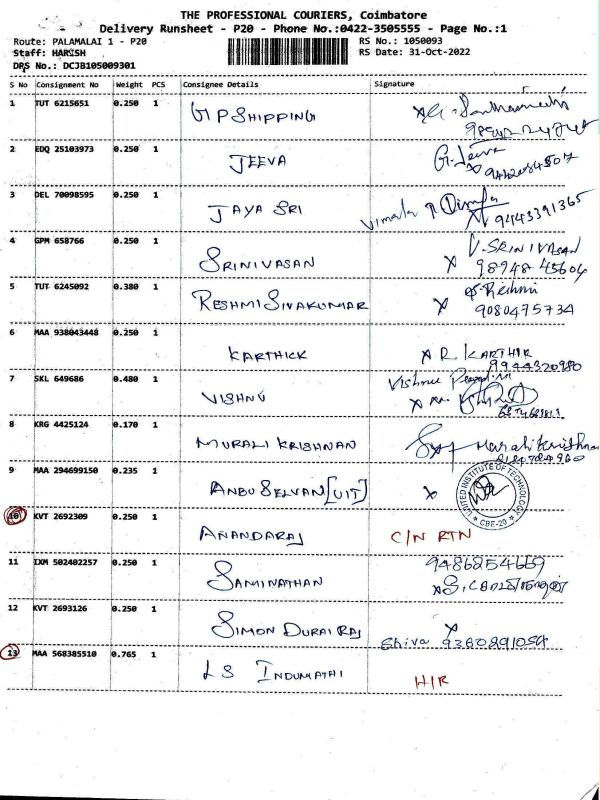 THE PROFESSIONAL COURIERS, Coimbatore
Delivery Runsheet - P20 - Phone No.:0422-3505555 - Page No.:1
Route: PALAMALAI 1 - P20 RS No.: 1050093
Staff: HARISH RS Date: 31-Oct-2022
DRS No.: DCJB105009301
S No Consignment No Weight PCS Consignee Details Signature
1 TUT 6215651 0.250 1 G P SHIPPING
2 EDQ 25103973 0.250 1 JEEVA G. Jeeva
3 DEL 70098595 0.250 1 JAYA SRI Vimala R
x 9443391365
4 GPM 658766 0.250 1 SRINIVASAN V. SRINIVASAN
x 98948 45604
5 TUT 6245092 0.380 1 RESHMI SIVAKUMAR S. Reshmi
x 9080475734
6 MAA 938043448 0.250 1 KARTHICK x R KARTHIK
9944320980
7 SKL 649686 0.480 1 VISHNU
8 KRG 4425124 0.170 1 MURALI KRISHNAN Muralikrishnan
9 MAA 294699150 0.235 1 ANBU SELVAN [UIT] x
UNITED INSTITUTE OF TECHNOLOGY
* CBE-20 *
10 KVT 2692309 0.250 1 ANANDARAJ C/N RTN
11 IXM 502402257 0.250 1 SAMINATHAN 9486254669
12 KVT 2693126 0.250 1 SIMON DURAI RAJ x
Shiva 9380891054
13 MAA 568385510 0.765 1 L S INDUMATHI H/R